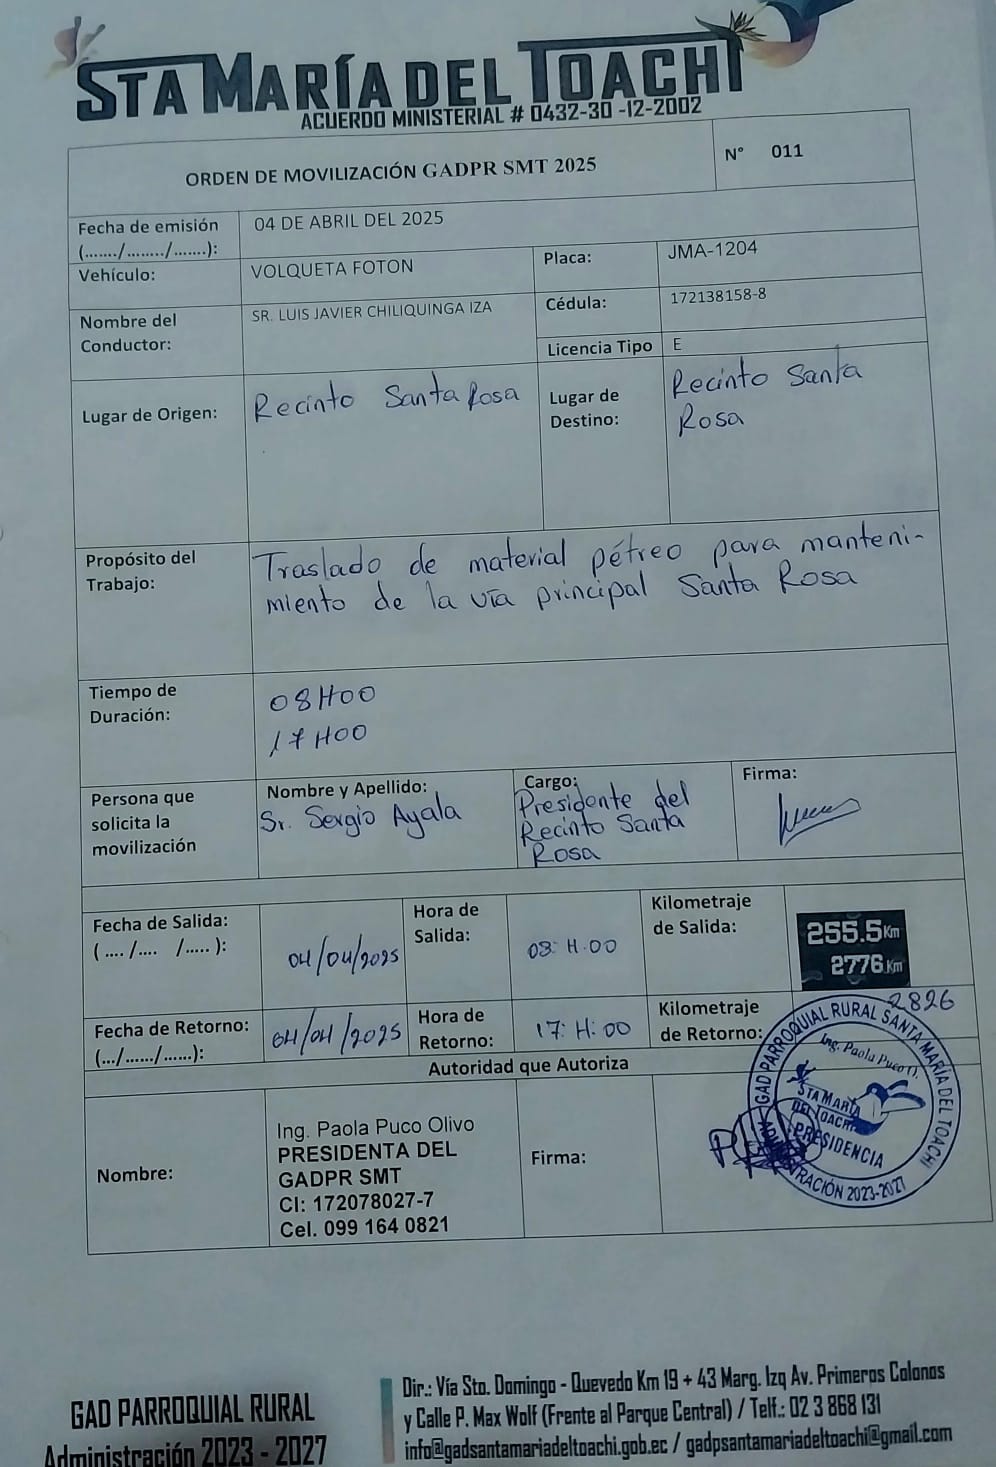 STA MARÍA DEL TOACHI
ACUERDO MINISTERIAL # 0432-30 -12-2002
ORDEN DE MOVILIZACIÓN GADPR SMT 2025
N° 011
Fecha de emisión
(......./......../.......):
04 DE ABRIL DEL 2025
Vehículo:
VOLQUETA FOTON
Placa:
JMA-1204
Nombre del
Conductor:
SR. LUIS JAVIER CHILIQUINGA IZA
Cédula:
172138158-8
Licencia Tipo
E
Lugar de Origen:
Recinto Santa Rosa
Lugar de
Destino:
Recinto Santa
Rosa
Propósito del
Trabajo:
Traslado de material pétreo para manteni-
miento de la vía principal Santa Rosa
Tiempo de
Duración:
08H00
17H00
Persona que
solicita la
movilización
Nombre y Apellido:
Sr. Sergio Ayala
Cargo:
Presidente del
Recinto Santa
Rosa
Firma:
Fecha de Salida:
( .... /.... /..... ):
04/04/2025
Hora de
Salida:
08: H:00
Kilometraje
de Salida:
255.5 Km
2776 Km
Fecha de Retorno:
(.../....../......):
04/04/2025
Hora de
Retorno:
17: H: 00
Kilometraje
de Retorno:
2826
Autoridad que Autoriza
Nombre:
Ing. Paola Puco Olivo
PRESIDENTA DEL
GADPR SMT
CI: 172078027-7
Cel. 099 164 0821
Firma:
GAD PARROQUIAL RURAL SANTA MARÍA DEL TOACHI
Ing. Paola Puco O.
STA MARÍA
DEL TOACHI
PRESIDENCIA
ADMINISTRACIÓN 2023-2027
GAD PARROQUIAL RURAL
Administración 2023 - 2027
Dir.: Vía Sto. Domingo - Quevedo Km 19 + 43 Marg. Izq Av. Primeros Colonos
y Calle P. Max Wolf (Frente al Parque Central) / Telf.: 02 3 868 131
info@gadsantamariadeltoachi.gob.ec / gadpsantamariadeltoachi@gmail.com